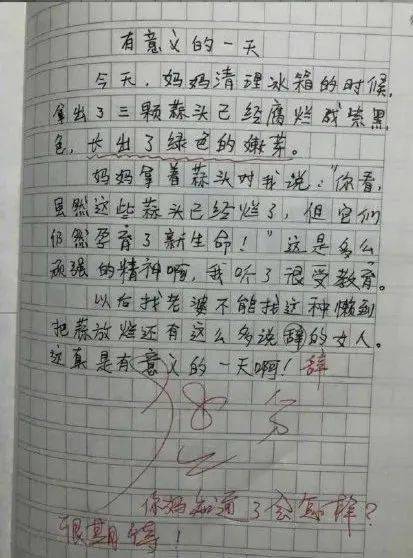 有意义的一天
今天，妈妈清理冰箱的时候，
拿出了三颗蒜头已经腐烂成紫黑
色，长出了绿色的嫩芽。
妈妈拿着蒜头对我说："你看，
虽然这些蒜头已经烂了，但它们
仍然孕育了新生命！"这是多么
顽强的精神啊，我听了很受教育。
以后找老婆不能找这种懒到
把蒜放烂还有这么多说辞的女人。
这真是有意义的一天啊！辞
98分
你妈知道了会怎样？
很期待！